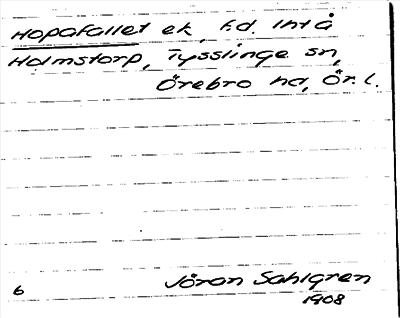 Hopafallet ek, f.d. lht å
Holmstorp, Tysslinge sn,
Örebro hd, Ör. l.
6 Jöran Sahlgren
1908